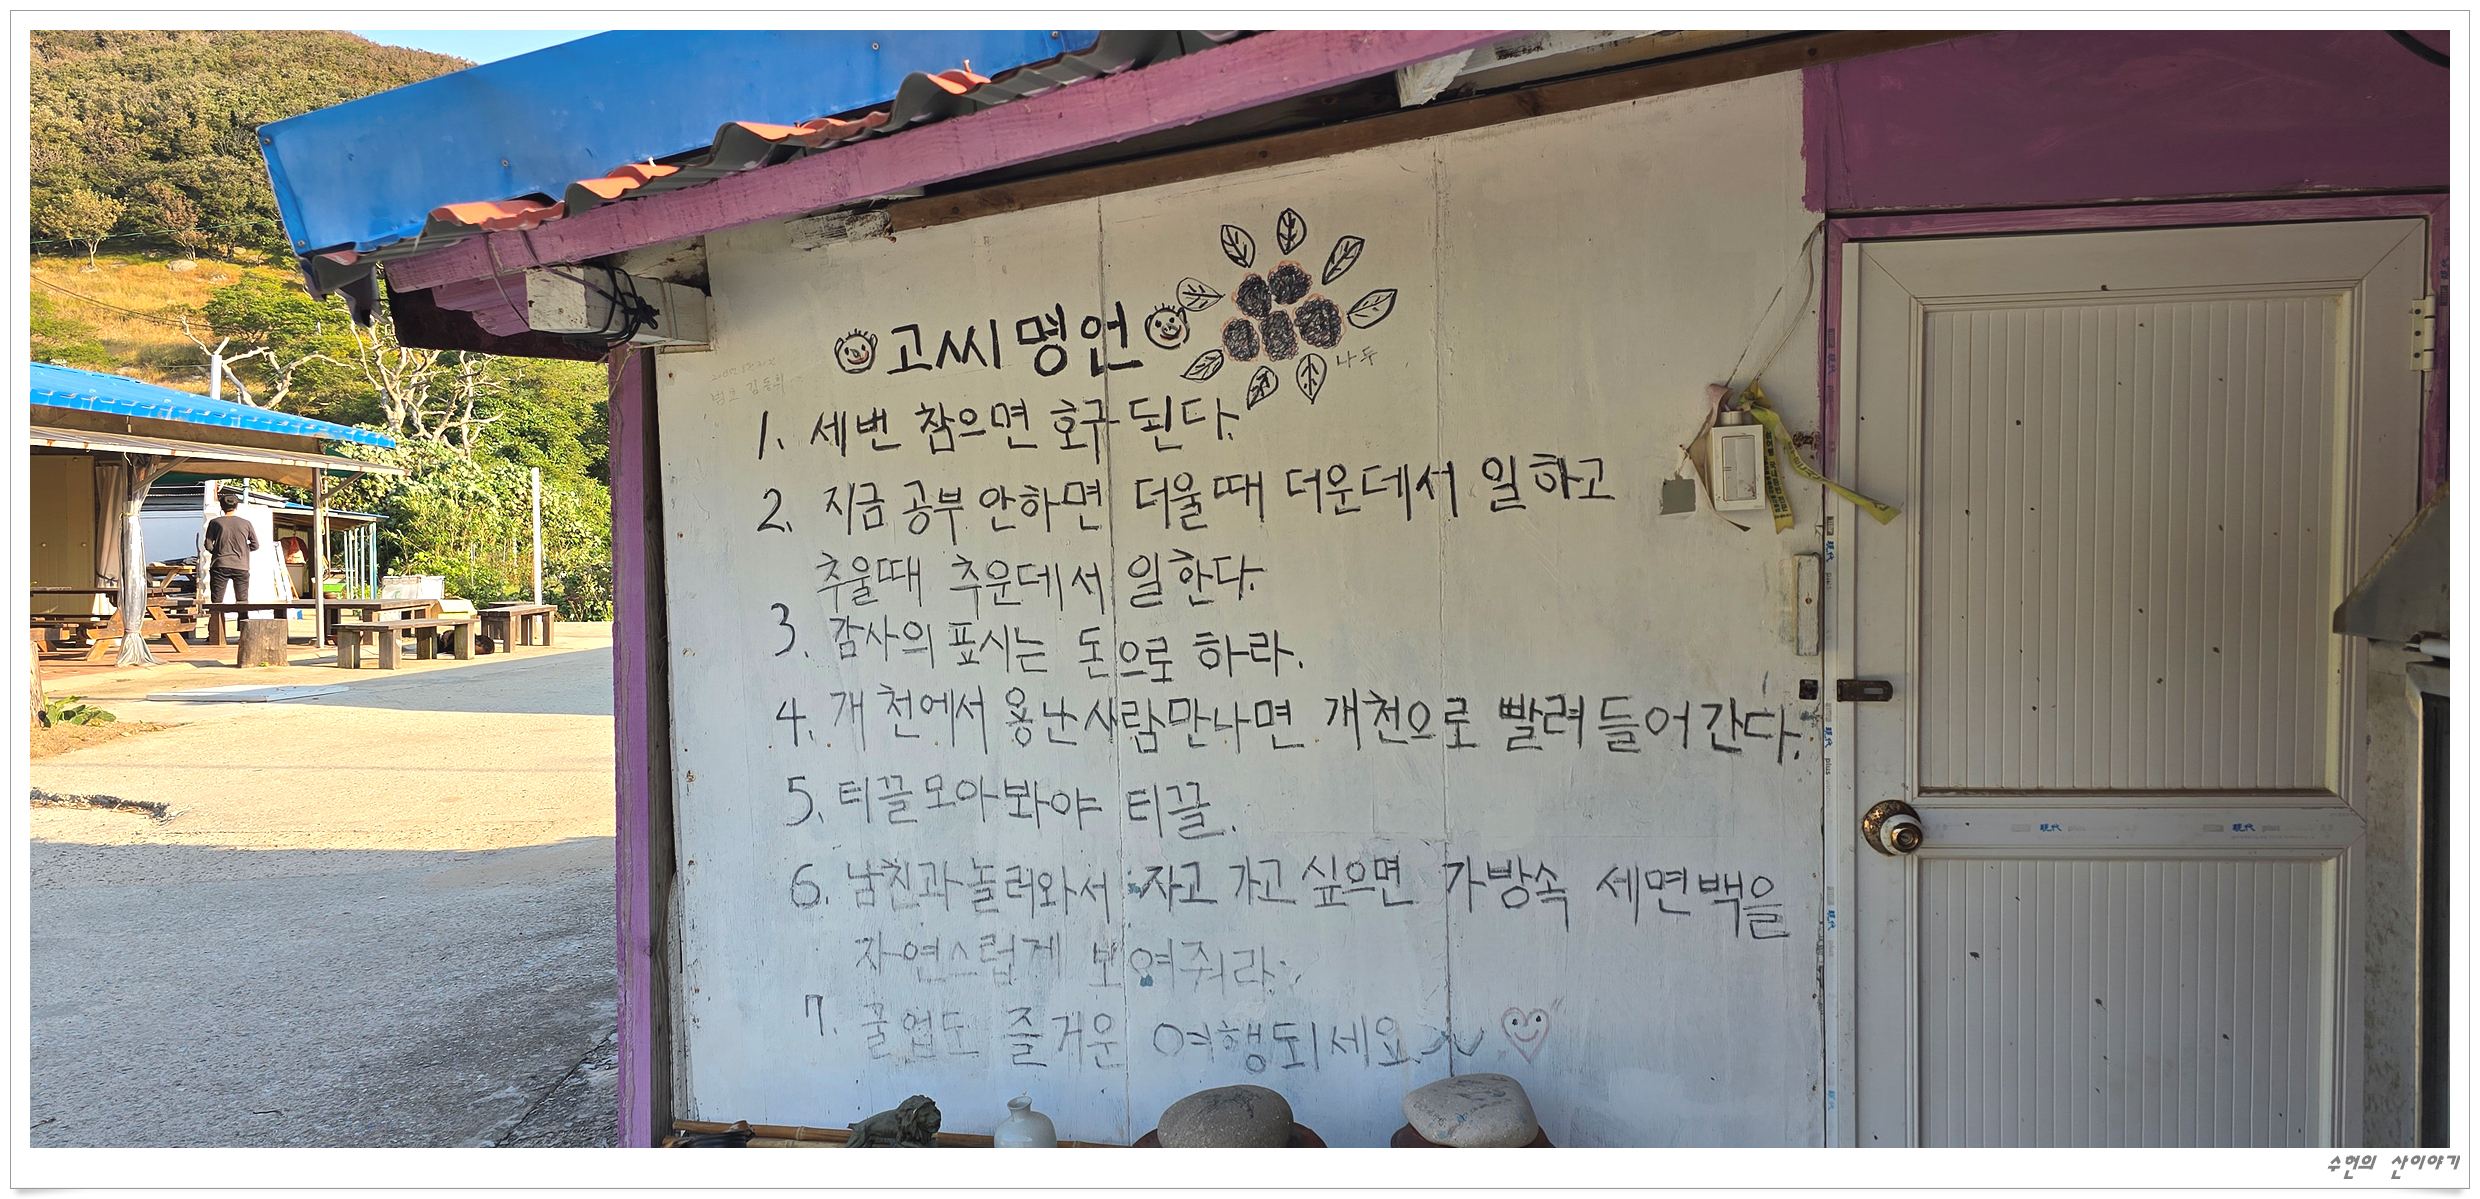 고씨명언
나두
1. 세번 참으면 호구된다.
2. 지금 공부 안하면 더울때 더운데서 일하고
추울때 추운데서 일한다.
3. 감사의 표시는 돈으로 하라.
4. 개천에서 용난사람만나면 개천으로 빨려들어간다.
5. 티끌모아봐야 티끌.
6. 남친과놀러와서 자고 가고 싶으면 가방속 세면백을
자연스럽게 보여줘라.
7. 굴업도 즐거운 여행되세요~
現代 plus
現代
수헌의 산이야기